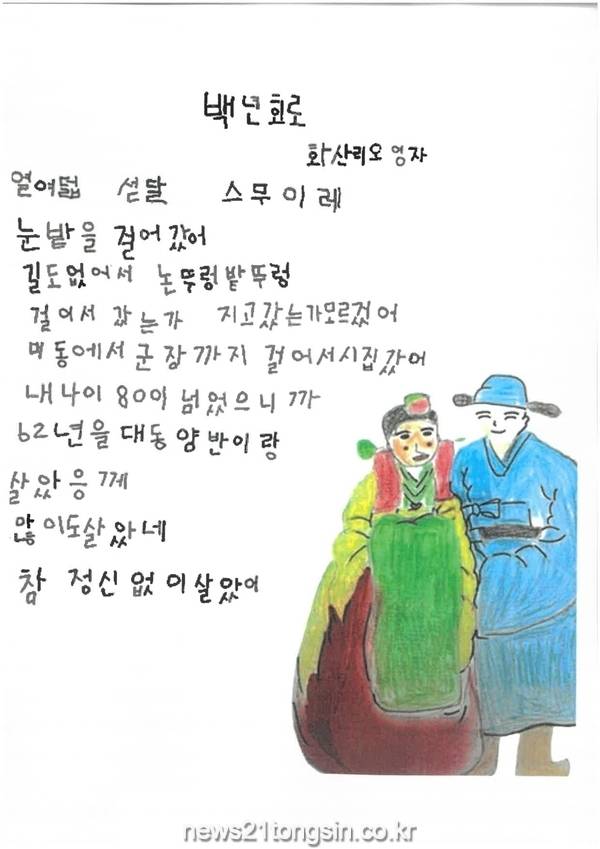 백년회로
화산리오영자
열여덟 섣달 스무이레
눈밭을 걸어갔어
길도없어서 논뚜렁밭뚜렁
걸어서 갔는가 지고갔는가모르겄어
미동에서 군장까지 걸어서시집갔어
내나이 80이 넘었으니까
62년을 대동양반이랑
살았응께
많이도살았네
참 정신없이살았어
news21tongsin.co.kr